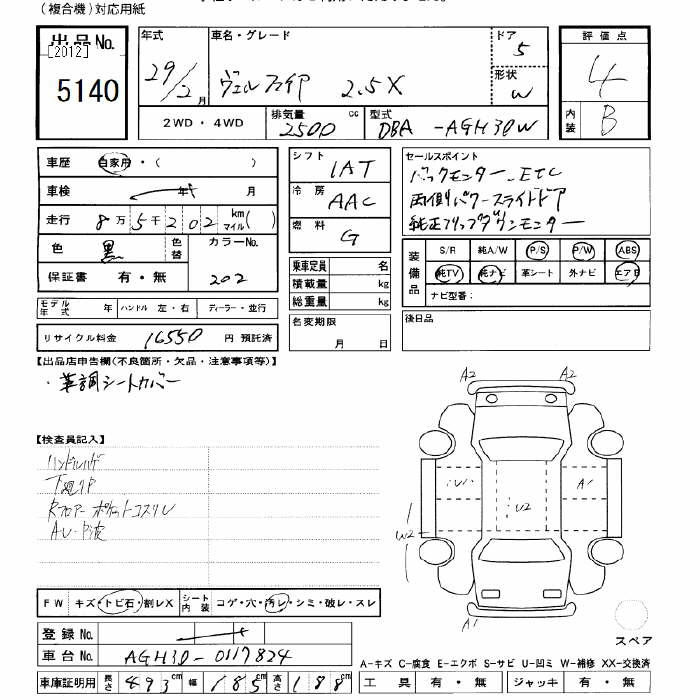 (複合機)対応用紙
出品No.
[2012]
5140
年式
29/2月
車名・グレード
ヴェルファイア 2.5X
ドア
5
形状
W
評価点
4
内装
B
2WD・4WD
排気量
2500 cc
型式
DBA-AGH30W
車歴 自家用・( )
車検 年 月
走行 8万5千202 km マイル( )
色 黒
色替
カラーNo.
202
保証書 有・無
モデル年式 年 ハンドル 左・右 ディーラー・並行
リサイクル料金 16550 円 預託済
シフト
IAT
冷房
AAC
燃料
G
乗車定員 名
積載量 kg
総重量 kg
名変期限
月 日
セールスポイント
バックモニター、ETC
両側パワースライドドア
純正フリップダウンモニター
装備品
S/R 純A/W P/S P/W ABS
純TV 純ナビ 革シート 外ナビ エアB
ナビ型番:
後日品
【出品店申告欄(不良箇所・欠品・注意事項等)】
・革調シートカバー
【検査員記入】
ハンドルハゲ
下廻りP
Rフロアーポケットコスリレ
AU-P波
A2 A2
U1 U2 A1
W2
A1
FW キズ・トビ石・割レX
シート内装 コゲ・穴・汚レ・シミ・破レ・スレ
登録No.
車台No. AGH30-0117824
車庫証明用 長さ 493cm 幅 185cm 高さ 188cm
スペア
A-キズ C-腐食 E-エクボ S-サビ U-凹ミ W-補修 XX-交換済
工具 有・無 ジャッキ 有・無